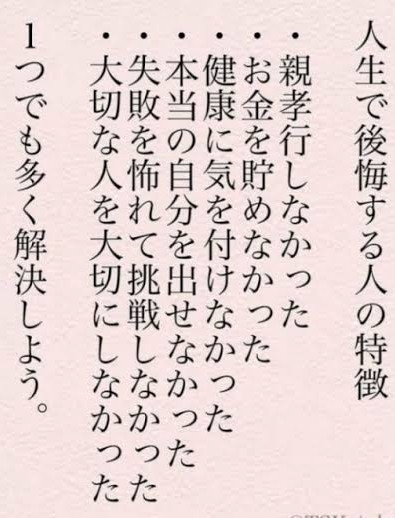 人生で後悔する人の特徴
・親孝行しなかった
・お金を貯めなかった
・健康に気を付けなかった
・本当の自分を出せなかった
・失敗を怖れて挑戦しなかった
・大切な人を大切にしなかった
1つでも多く解決しよう。